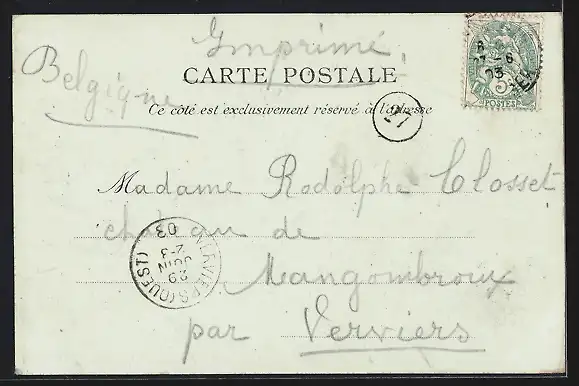 Imprimé
Belgique
CARTE POSTALE
Ce côté est exclusivement réservé à l'adresse
POSTES
5
03
Madame Rodolphe Closset
château de
Mangombroux
par Verviers
VERVIERS (OUEST)
29
JUIN
2-3
03